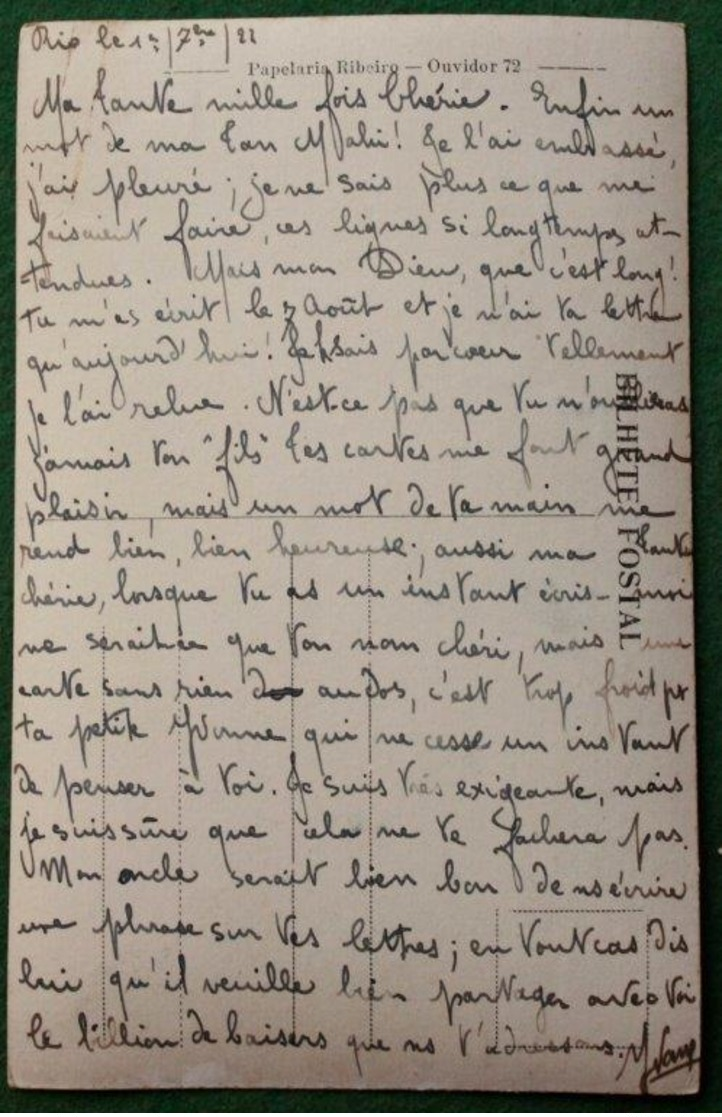 Rio le 1er/7bre/22
Papelaria Ribeiro — Ouvidor 72
Ma tante mille fois chérie. Enfin un
mot de ma Tan Mahi! Je l'ai embrassé,
j'ai pleuré; je ne sais plus ce que me
faisaient faire, ces lignes si longtemps at-
tendues. Mais mon Dieu, que c'est long!
tu m'as écrit le 7 Août et je n'ai ta lettre
qu'aujourd'hui! Je sais par cœur tellement
je l'ai relue. N'est-ce pas que tu n'oublieras
jamais ton "fils" tes cartes me font grand
plaisir, mais un mot de ta main me
rend bien, bien heureuse; aussi ma tante
chérie, lorsque tu as un instant écris-moi
ne serait-ce que ton nom chéri, mais une
carte sans rien au dos, c'est trop froid pr
ta petite Yvonne qui ne cesse un instant
de penser à toi. Je suis très exigeante, mais
je suis sûre que cela ne te fachera pas.
Mon oncle serait bien bon de ns écrire
une phrase sur tes lettres; en tout cas dis
lui qu'il veuille bien partager avec toi
le billion de baisers que ns t'adressons.
BILHETE POSTAL